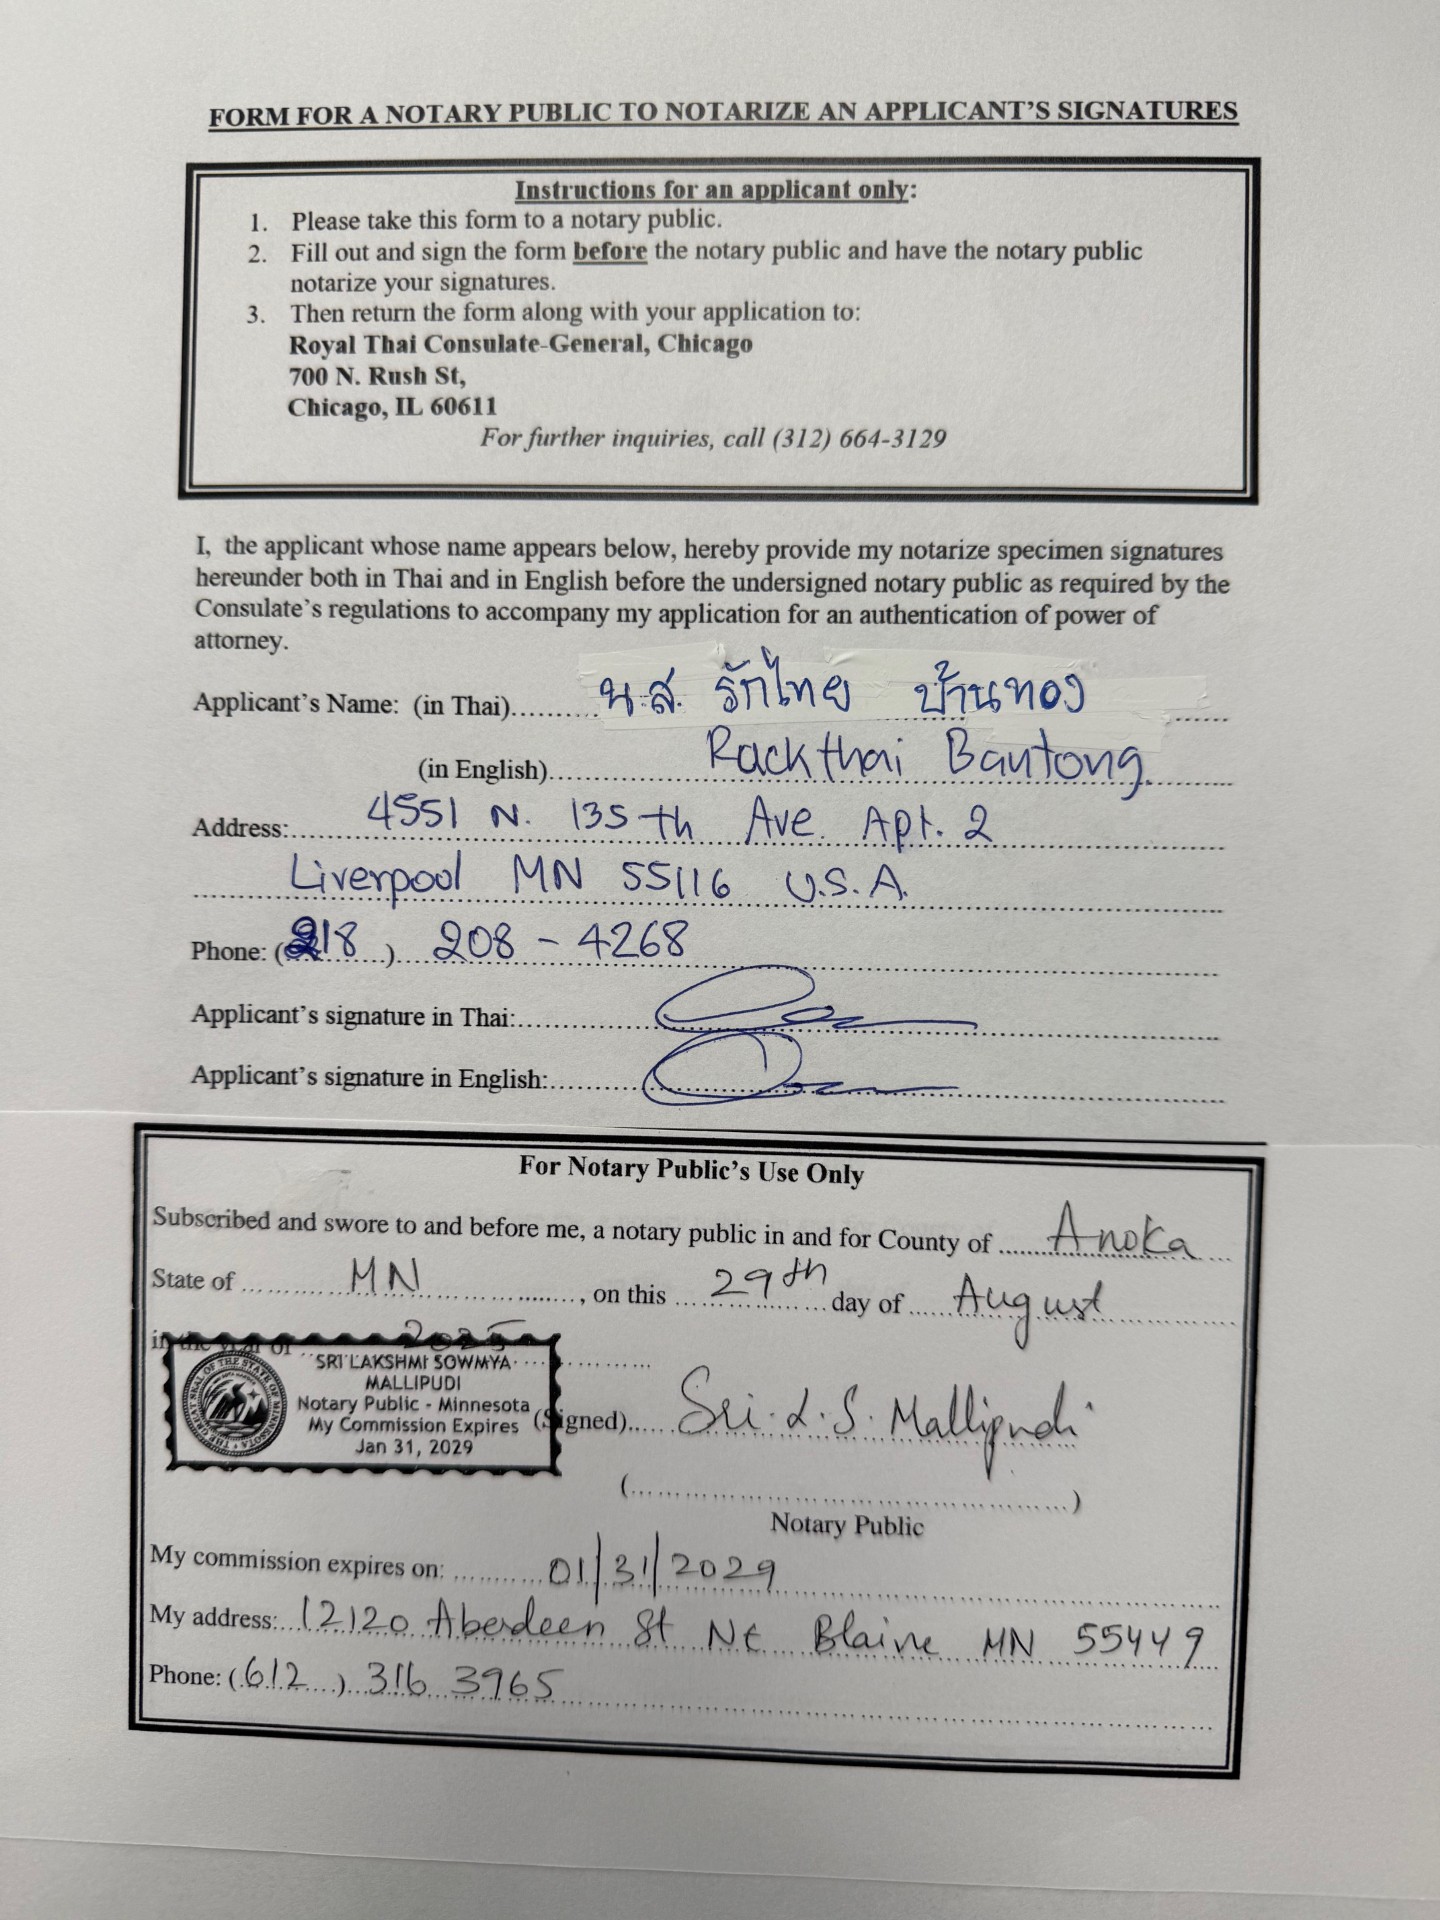 FORM FOR A NOTARY PUBLIC TO NOTARIZE AN APPLICANT'S SIGNATURES
Instructions for an applicant only:
1. Please take this form to a notary public.
2. Fill out and sign the form before the notary public and have the notary public
notarize your signatures.
3. Then return the form along with your application to:
Royal Thai Consulate-General, Chicago
700 N. Rush St,
Chicago, IL 60611
For further inquiries, call (312) 664-3129
I, the applicant whose name appears below, hereby provide my notarize specimen signatures
hereunder both in Thai and in English before the undersigned notary public as required by the
Consulate's regulations to accompany my application for an authentication of power of
attorney.
Applicant's Name: (in Thai)..........น.ส. รักไทย บ้านทอง
(in English)..........Rackthai Bantong.
Address:..........4551 N. 135th Ave. Apt. 2
Liverpool MN 55116 U.S.A.
Phone: (218) 208 - 4268
Applicant's signature in Thai:..........
Applicant's signature in English:..........
For Notary Public's Use Only
Subscribed and swore to and before me, a notary public in and for County of ..........Anoka
State of ..........MN.........., on this ..........29th.......... day of ..........August
in the year of ..........2025
SRI LAKSHMI SOWMYA
MALLIPUDI
Notary Public - Minnesota
My Commission Expires
Jan 31, 2029
THE GREAT SEAL OF THE STATE OF MINNESOTA
(Signed)..... Sri. L. S. Mallipudi
(....................)
Notary Public
My commission expires on: ..........01/31/2029
My address:....12120 Aberdeen St NE Blaine MN 55449
Phone: (612) 316 3965